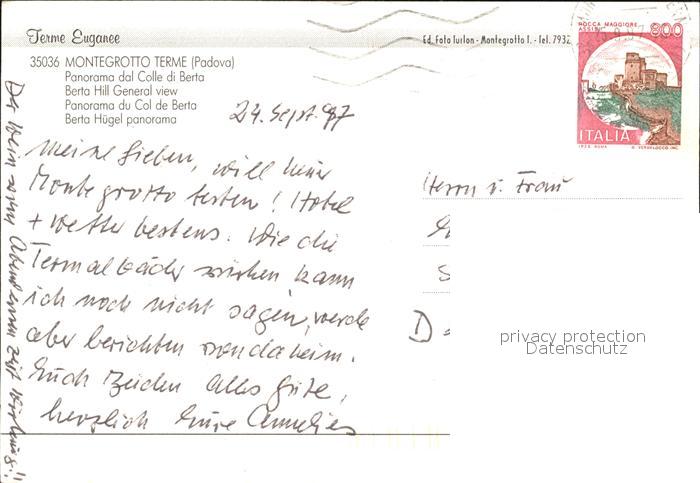 Terme Euganee
35036 MONTEGROTTO TERME (Padova)
Panorama dal Colle di Berta
Berta Hill General view
Panorama du Col de Berta
Berta Hügel panorama
Ed. Foto Turlon - Montegrotto T. - Tel. 7932
ROCCA MAGGIORE
ASSISI
800
ITALIA
24. Sept. 97
Meine Lieben, will hier
Montegrotto testen! Hotel
+ Wetter bestens. Wie die
Termalbäder wirken kann
ich noch nicht sagen, werde
aber berichten von daheim.
Euch beiden alles Gute,
herzlich Eure Annelies
Der Wein zum Abendessen zeigt Wirkung!!
Herrn u. Frau
D-
privacy protection
Datenschutz